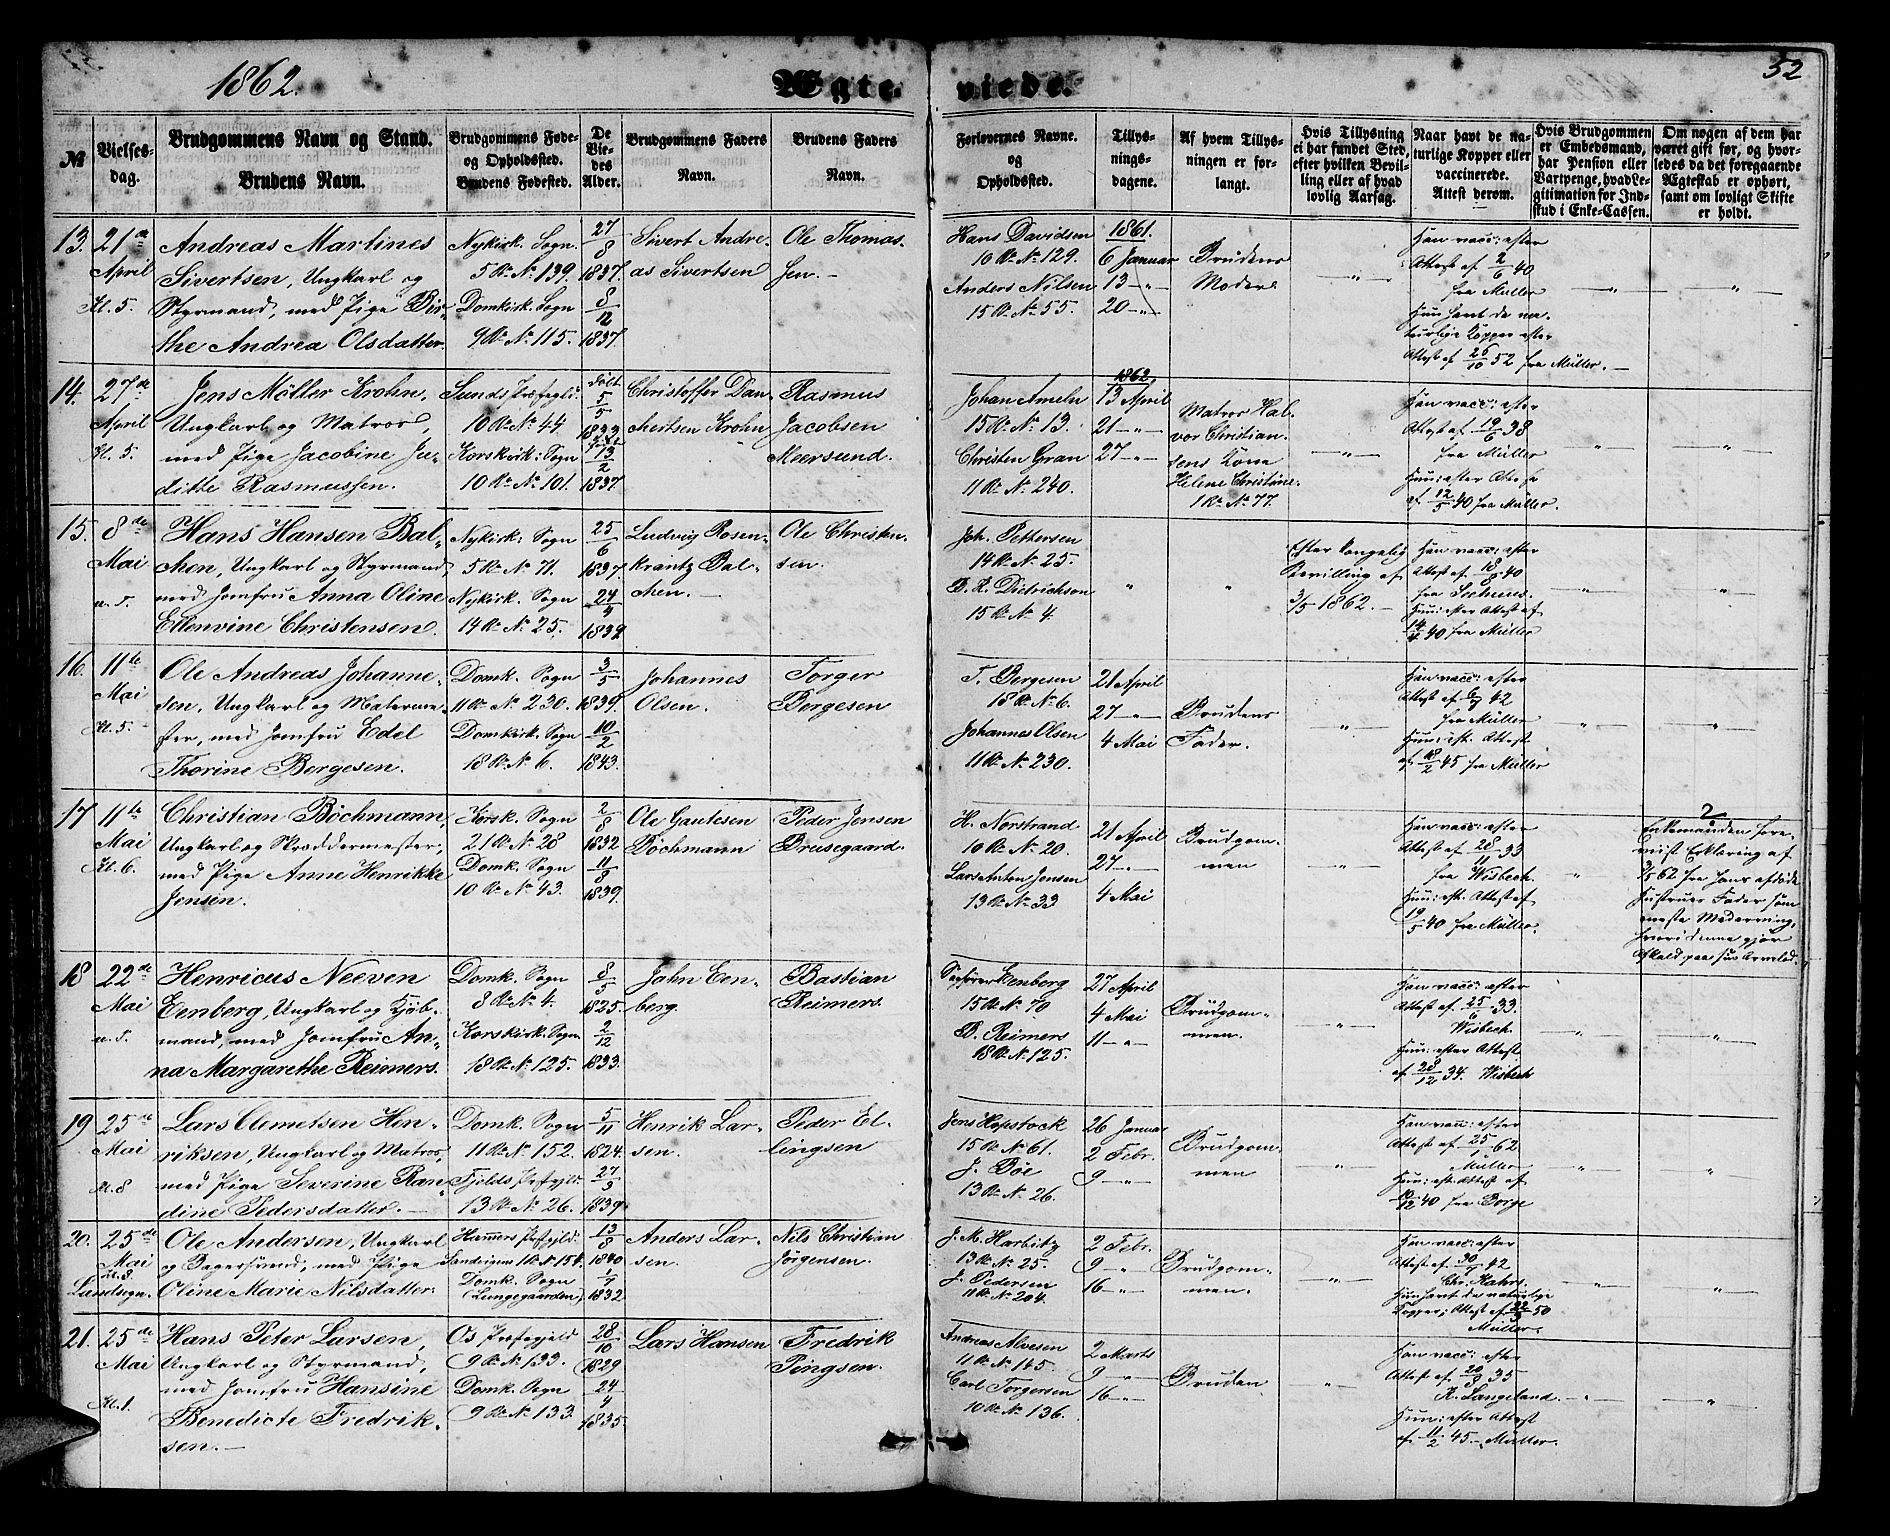 1862.
Ægte-
viede.
52
№
Vielses-
dag.
Brudgommens Navn og Stand.
Brudens Navn.
Brudgommens Føde-
og Opholdssted.
Brudens Fødested.
De
Vie-
des
Alder.
Brudgommens Faders
Navn.
Brudens Faders
Navn.
Forlovernes Navne.
og
Opholdssted.
Tillys-
nings-
dagene.
Af hvem Tillys-
ningen er for-
langt.
Hvis Tillysning
ei har fundet Sted,
efter hvilken Bevil-
ling eller af hvad
lovlig Aarsag.
Naar havt de na-
turlige Kopper eller
vaccinerede.
Attest derom.
Hvis Brudgommen
er Embedsmand,
har Pension eller
Vartpenge, hvad Le-
gitimation for Ind-
skud i Enke-Cassen.
Om nogen af dem har
været gift før, og hvor-
ledes da det foregaaende
Ægteskab er ophørt,
samt om lovligt Skifte
er holdt.
13. 21de
April
Kl. 5.
Andreas Martines
Sivertsen, Ungkarl og
Styrmand, med Pige Bir-
the Andrea Olsdatter.
Nykirk. Sogn.
5 R. No 139.
Domkirk. Sogn
9 R. No 115.
27/8
1837.
8/12
1837
Sivert Andre-
as Sivertsen
Ole Thomas-
sen. —
Hans Davidsen
10 R. No 129.
Anders Nilsen
15 R. No 55.
1861.
6 Januar
13 — " —
20 — " —
Brudens
Moder
— " —
Han vacc: efter
Attest af 2/6 40
fra Müller
Hun havt de na-
turlige Kopper efter
Attest af 26/10 52 fra Müller. —
— " —
"
14. 27de
April
Kl. 5.
Jens Møller Krohn,
Ungkarl og Matros,
med Pige Jacobine Ju-
ditte Rasmussen.
Sunds Præstegld:
10 R. No 44
Korskirk: Sogn
10 R. No 101.
døbt
5/5
1833
født
13/2
1837
Christoffer Dan-
chertsen Krohn
Rasmus
Jacobsen
Meersund.
Johan Ameln
15 R. No 13.
Christen Gran
11 R. No 240.
1862.
13 April
21 — " —
27 — " —
Matros Hal-
vor Christian-
sens Kone
Helene Christine.
1 R. No 77.
— " —
Han vacc: efter
Attest af 19/6 38
fra Müller
Hun: efter Attest
af 12/5 40 fra Müller.
"
— " —
15. 8de
Mai
Hans Hansen Bal-
chen, Ungkarl og Styrmand,
med Jomfru Anna Oline
Ellenvine Christensen.
Nykirk: Sogn
5 R. No 71.
Nykirk. Sogn
14 R. No 25.
25/6
1837
24/4
1839
Ludvig Rosen-
krantz Bal-
chen. —
Ole Christen-
sen.
Joh. Pettersen
14 R. No 25.
B. R. Dietrichson
15 R. No 4.
"
"
Efter kongelig
Bevilling af
3/5 1862. —
Han vacc: efter
Attest af 18/8 40
Hun: efter Attest af
14/4 40 fra Müller
— " —
"
16. 11te
Mai
Kl. 5.
Ole Andreas Johanne-
sen, Ungkarl og Malerme-
ster, med Jomfru Edel
Thorine Børgesen.
Domk. Sogn
11 R. No 230.
Domkirk. Sogn
18 R. No 6.
3/5
1839.
10/2
1843.
Johannes
Olsen.
Torger
Børgesen
T. Børgesen
18 R. No 6.
Johannes Olsen
11 R. No 230.
21 April
27 — " —
4 Mai
Brudens
Fader.
"
Han vacc: efter
Attest af 6/9 42
fra Müller
Hun: eft. Attest
af 12/2 45 fra Müller
"
"
17 11te
Mai
Kl. 6.
Christian Bøchmann,
Ungkarl og Skræddermester,
med Pige Anne Henrikke
Jensen.
Korsk. Sogn
21 R. No 28
Domk. Sogn
10 R. No 43.
2/8
1832
11/9
1839.
Ole Gautesen
Bøchmann
Peder Jensen
Brusegaard.
H. Norstrand
10 R. No 20.
Lars Anton Jensen
13 R. No 33
21 April
27 — " —
4 Mai
Brudgom-
men
— " —
Han vacc: efter
Attest af 28/11 33
fra Wisbech
Hun: eft. Attest af
19/5 40 fra Müller.
"
2
Enkemanden fore-
viist Erklæring af
3/5 62 fra hans afdøde
Hustrues Fader
18 22de
Mai
Henricus Neeven
Eenberg, Ungkarl og Kjøb-
mand, med Jomfru An-
na Margarethe Reimers.
Domk. Sogn
8 R. No 4.
Korskirk. Sogn
18 R. No 125.
8/5
1825.
2/12
1833.
Jahn Een-
berg.
Bastian
Reimers.
Eenberg
15 R. No 70
B. Reimers
18 R. No 125.
27 April
4 Mai
11 — " —
Brudgom-
men.
— " —
Han vacc: efter
Attest af 25/6 33.
Wisbech.
Hun: efter Attest
af 28/12 34. Wisbech
"
"
19 25de
Mai
Kl. 8
Lars Clemetsen Hen-
riksen, Ungkarl og Matros,
med Pige Severine Ran-
dine Pedersdatter. —
Domk. Sogn
11 R. No 152.
Fjelds Præstgjld:
13 R. No 26.
5/11
1824.
27/3
1839
Henrik Lar-
sen.
Peder El-
lingsen
Jens Hopstock
15 R. No 61.
J. Bøe
13 R. No 26.
26 Januar
2 Febr.
9 — " —
Brudgom-
men
— " —
Han vacc: efter
Attest af 25/1 62
Müller
Hun: eft. Attest af
10/12 40 fra Borge
— " —
"
20. 25de
Mai
Kl. 8.
Landsogn.
Ole Andersen, Ungkarl
og Bagersvend, med Pige
Oline Marie Nilsdatter.
Hammers Præstgjld:
Sandvigene 1 R. No 154.
Domk. Sogn
(Lungegaarden).
13/8
1840
1/9
1832
Anders Lar-
sen.
Nils Christian
Jørgensen.
J. M. Harbitz
13 R. No 25.
J. Pedersen
11 R. No 204.
2 Febr.
9 — "
16 — " —
Brudgom-
men.
— " —
Han vacc: efter
Attest af 30/7 42
Hun havt de naturlige
Kopper; Attest af 22/3 50
Müller.
— " —
— " —
21. 25de
Mai
Kl. 1.
Hans Peter Larsen,
Ungkarl og Styrmand,
med Jomfru Hansine
Benedicte Fredrik-
sen. —
Os Præstegjeld
9 R. No 133.
Domk. Sogn
9 R. No 133.
28/10
1829
24/4
1835.
Lars Hansen
Fredrik
Pingsen.
Andreas Alvesen
11 R. No 145.
Carl Torgersen
10 R. No 136.
2 Marts
9 "
16 — " —
Bruden
"
Han vacc: efter
Attest af 20/9 35
R. Langeland.
Hun: efter Attest
af 11/2 45. — Müller.
— " —
— " —